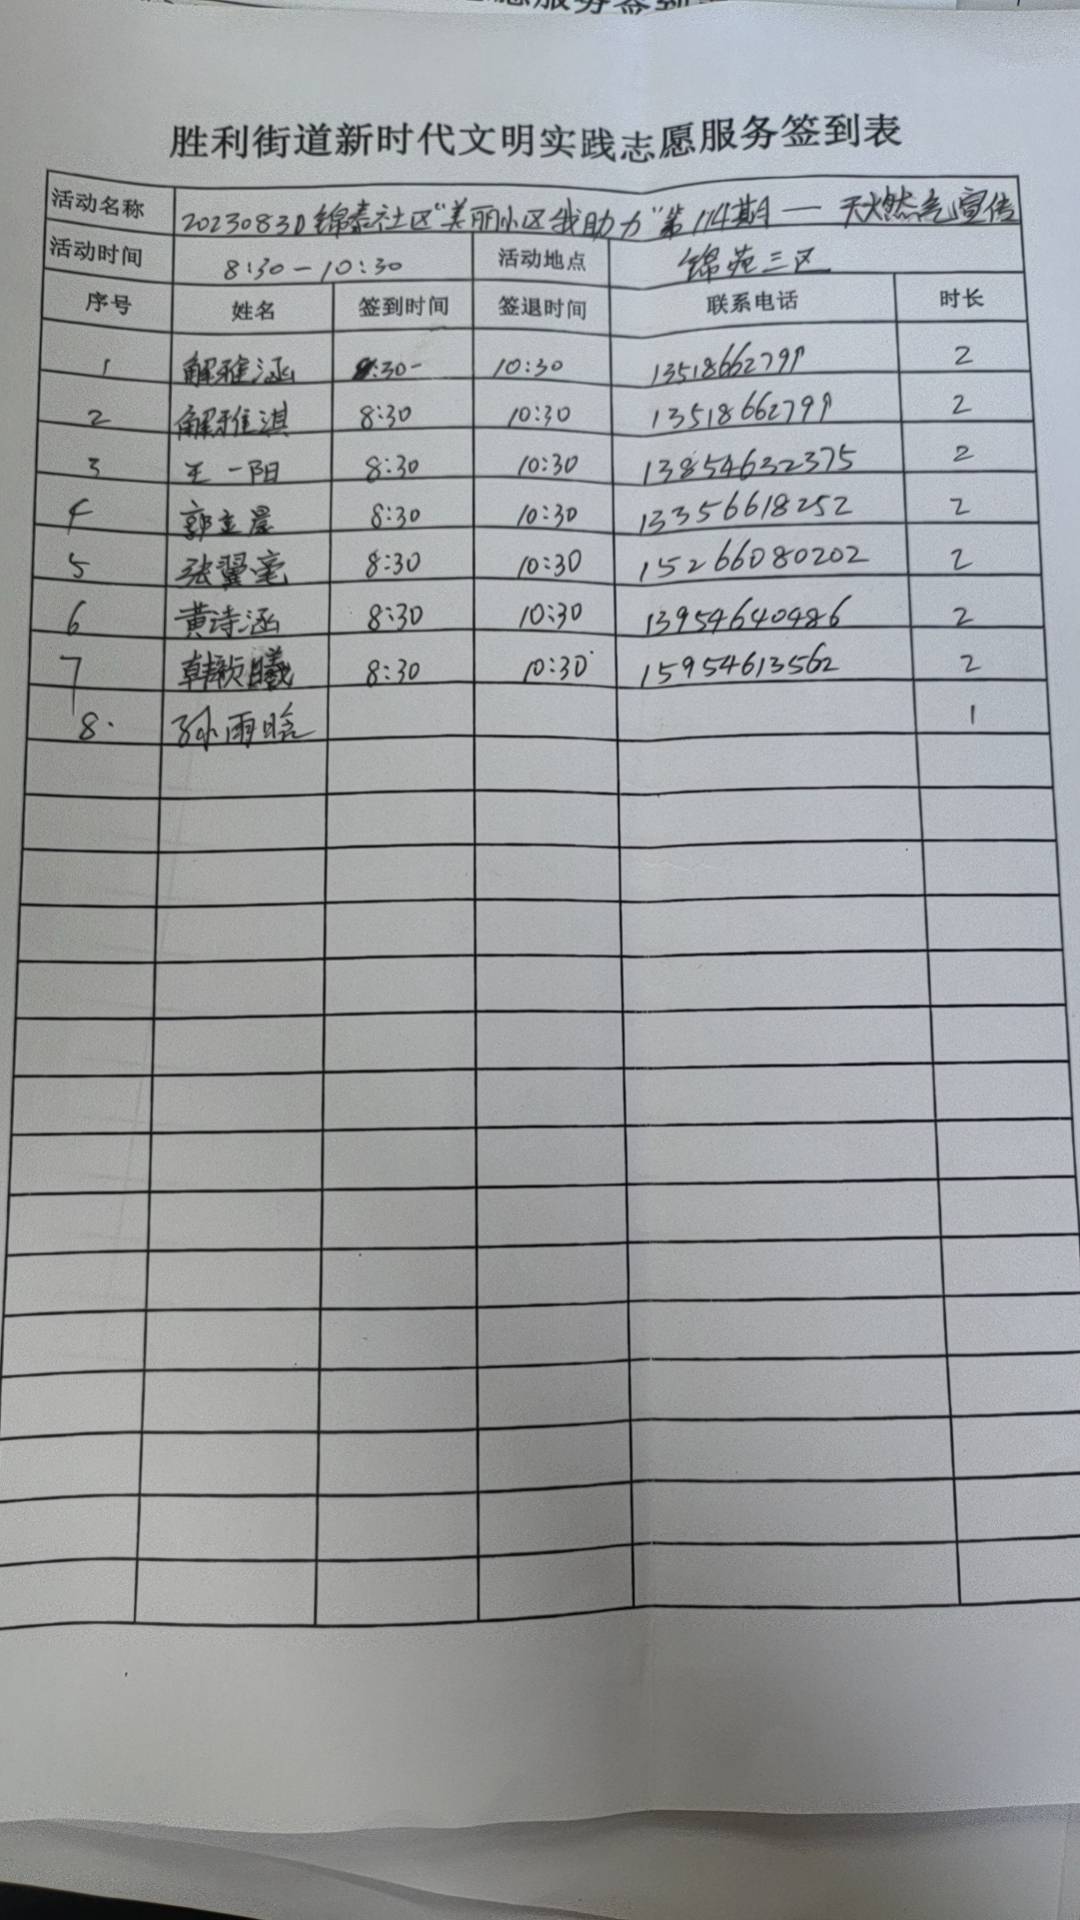 胜利街道新时代文明实践志愿服务签到表
活动名称 20230830锦泰社区“美丽小区我助力”第114期—天燃气宣传
活动时间 8:30-10:30 活动地点 锦苑三区
序号 姓名 签到时间 签退时间 联系电话 时长
1 解雅涵 8:30- 10:30 13518662791 2
2 解雅淇 8:30 10:30 13518662791 2
3 王一阳 8:30 10:30 13854632375 2
4 郭立晨 8:30 10:30 13356618252 2
5 张翼毫 8:30 10:30 15266080202 2
6 黄诗涵 8:30 10:30 13954640486 2
7 韩 曦 8:30 10:30 15954613562 2
8. 孙雨晗 1